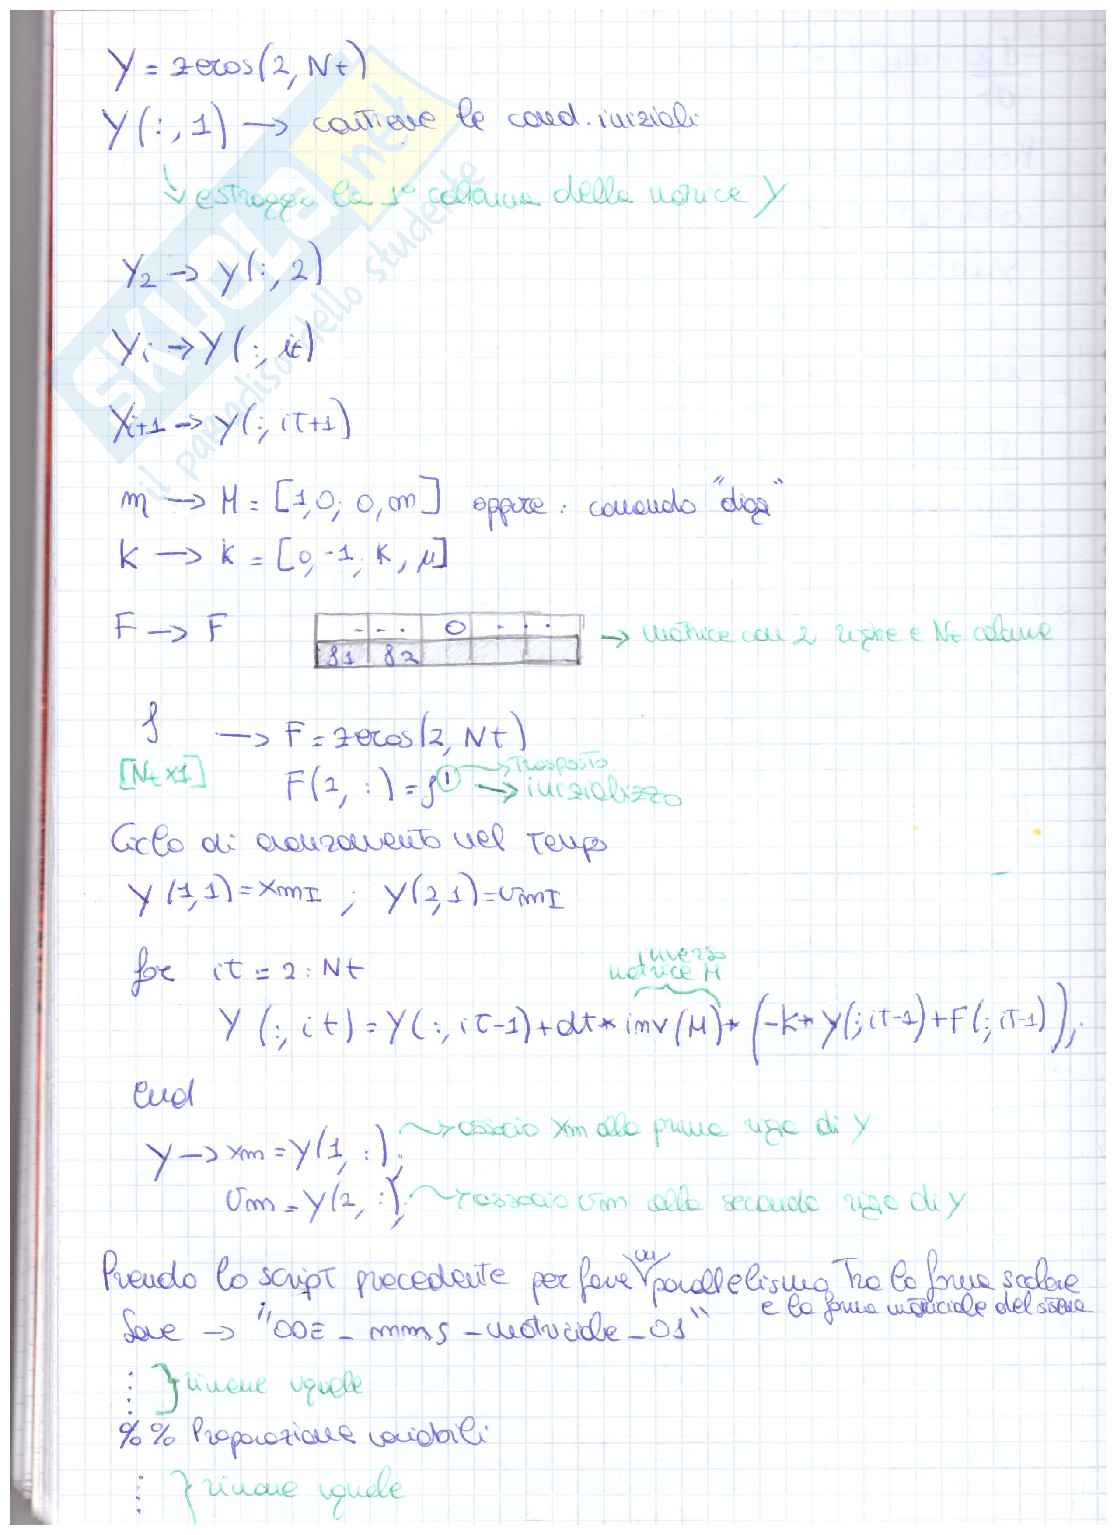 Y = zeros(2, Nt)
Y(:,1) → contiene le cond. iniziali
↳ estraggo la 1° colonna della matrice Y
Y2 → Y(:,2)
Yi → Y(:,it)
Yi+1 → Y(:,it+1)
m → M = [1,0; 0,m] oppure: comando "diag"
K → K = [0,-1; K, μ]
F → F
--. 0 ...
f1 f2
→ matrice con 2 righe e Nt colonne
f → F = zeros(2, Nt)
[Nt x1]
F(2,:) = f' → trasposto
→ inizializzo
Ciclo di avanzamento nel tempo
Y(1,1) = xmI ; Y(2,1) = vmI
for it = 2 : Nt
inversa
matrice M
Y(:,it) = Y(:,it-1) + dt * inv(M) * (-K * Y(:,it-1) + F(:,it-1));
end
Y → xm = Y(1,:); → associo xm alla prima riga di Y
vm = Y(2,:); → associo vm alla seconda riga di Y
Prendo lo script precedente per fare un parallelismo tra la forma scalare
e la forma matriciale del sistema
Save → "ODE_mms_matriciale_01"
⋮ } rimane uguale
%% Preparazione variabili
⋮ } rimane uguale
SKUOLA.net
il paradiso dello studente